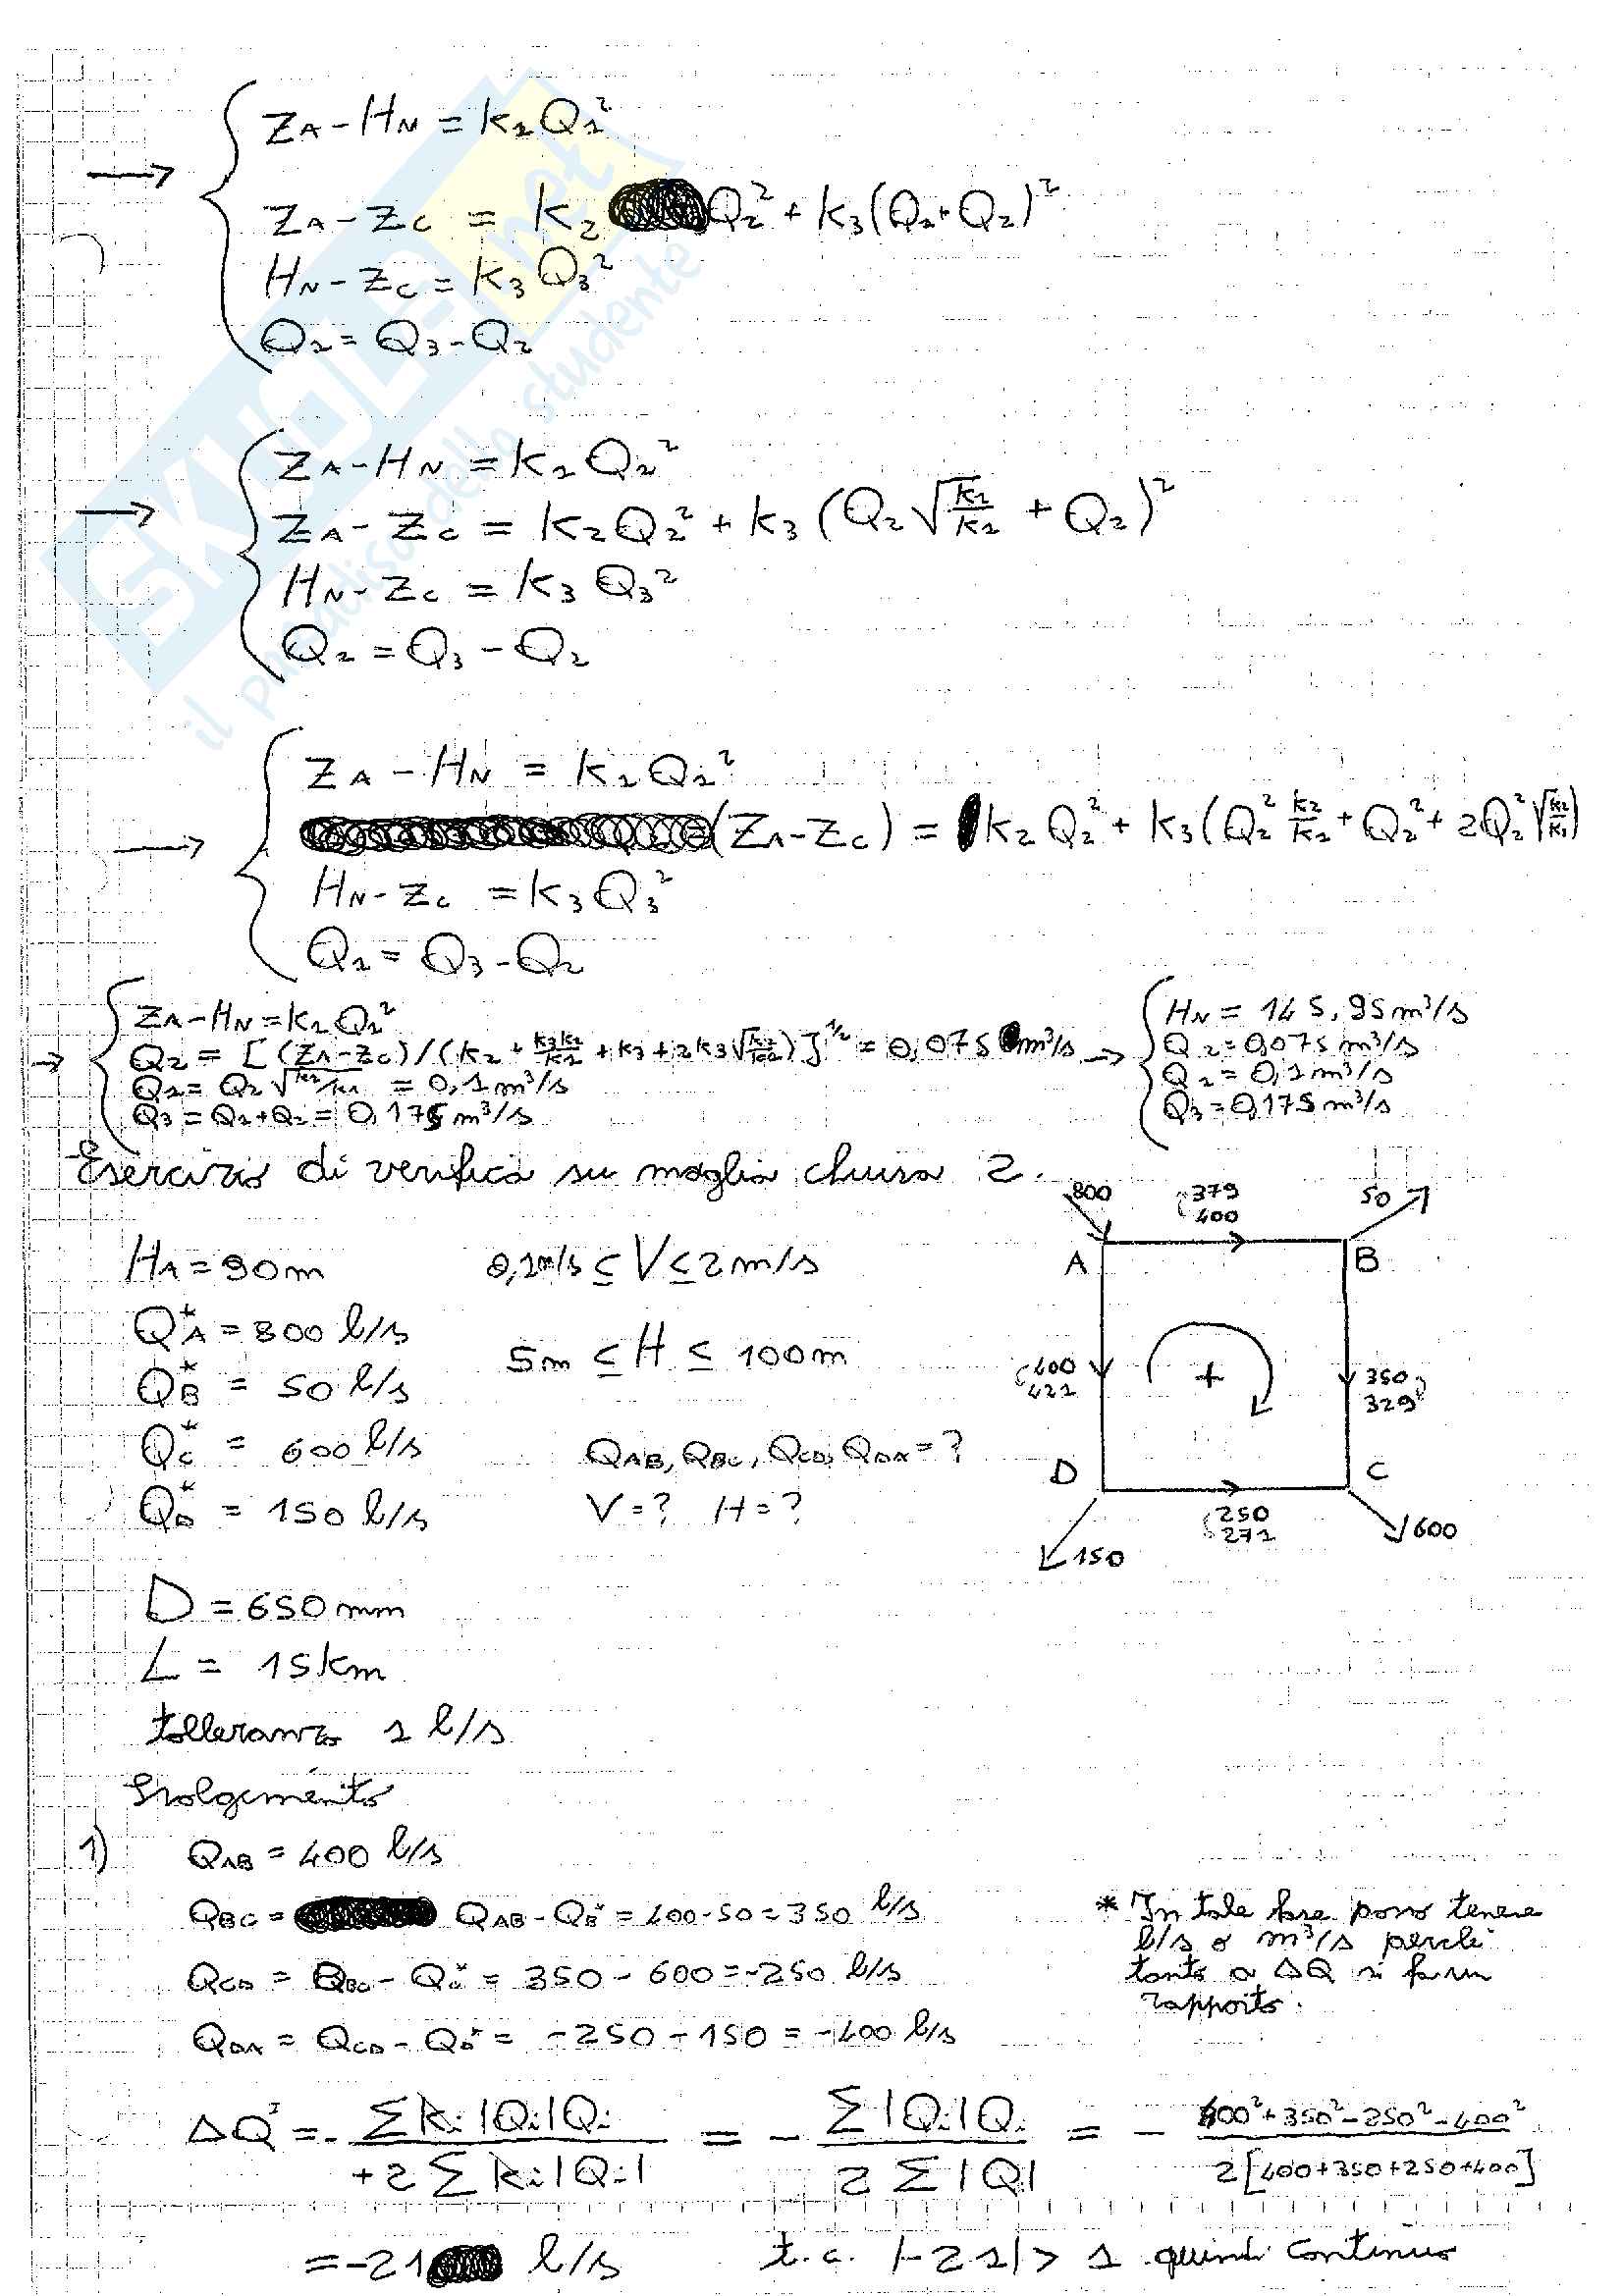 → { Z_A - H_N = k_1 Q_1²
Z_A - Z_C = k_2 Q_2² + k_3 (Q_1 + Q_2)²
H_N - Z_C = k_3 Q_3²
Q_1 = Q_3 - Q_2
→ { Z_A - H_N = k_1 Q_1²
Z_A - Z_C = k_2 Q_2² + k_3 (Q_2 √(k_2/k_1) + Q_2)²
H_N - Z_C = k_3 Q_3²
Q_1 = Q_3 - Q_2
→ { Z_A - H_N = k_1 Q_1²
(Z_A - Z_C) = k_2 Q_2² + k_3 (Q_2² k_2/k_1 + Q_2² + 2Q_2² √(k_2/k_1))
H_N - Z_C = k_3 Q_3²
Q_1 = Q_3 - Q_2
→ { Z_A - H_N = k_1 Q_1²
Q_2 = [(Z_A - Z_C)/(k_2 + k_3k_2/k_1 + k_3 + 2k_3 √(k_2/k_1))]^1/2 = 0,075 m³/s → { H_N = 145,95 m³/s
Q_1 = Q_2 √(k_2/k_1) = 0,1 m³/s
Q_3 = Q_1 + Q_2 = 0,175 m³/s
Q_2 = 0,075 m³/s
Q_1 = 0,1 m³/s
Q_3 = 0,175 m³/s
-Esercizio di verifica su maglia chiusa 2.
H_A = 90 m
0,1 m/s ≤ V ≤ 2 m/s
Q*_A = 800 l/s
Q*_B = 50 l/s
5m ≤ H ≤ 100m
Q*_C = 600 l/s
Q_AB, Q_BC, Q_CD, Q_DA = ?
Q*_D = 150 l/s
V = ? H = ?
800
379
400
50
A
B
400
421
+
350
329
D
C
250
271
150
600
D = 650 mm
L = 15 km
tolleranza 1 l/s
Svolgimento
1) Q_AB = 400 l/s
Q_BC = Q_AB - Q*_B = 400 - 50 = 350 l/s
Q_CD = Q_BC - Q*_C = 350 - 600 = -250 l/s
Q_DA = Q_CD - Q*_D = -250 - 150 = -400 l/s
* In tale fase posso tenere
l/s o m³/s perché
tanto a ΔQ si fa un
rapporto.
ΔQ¹ = - Σ k_i |Q_i| Q_i / +2 Σ k_i |Q_i| = - Σ |Q_i| Q_i / 2 Σ |Q| = - 400² + 350² - 250² - 400² / 2[400+350+250+400]
= -21 l/s t.c. |-21| > 1 quindi continuo
SKUOLA.net
il paradiso dello studente